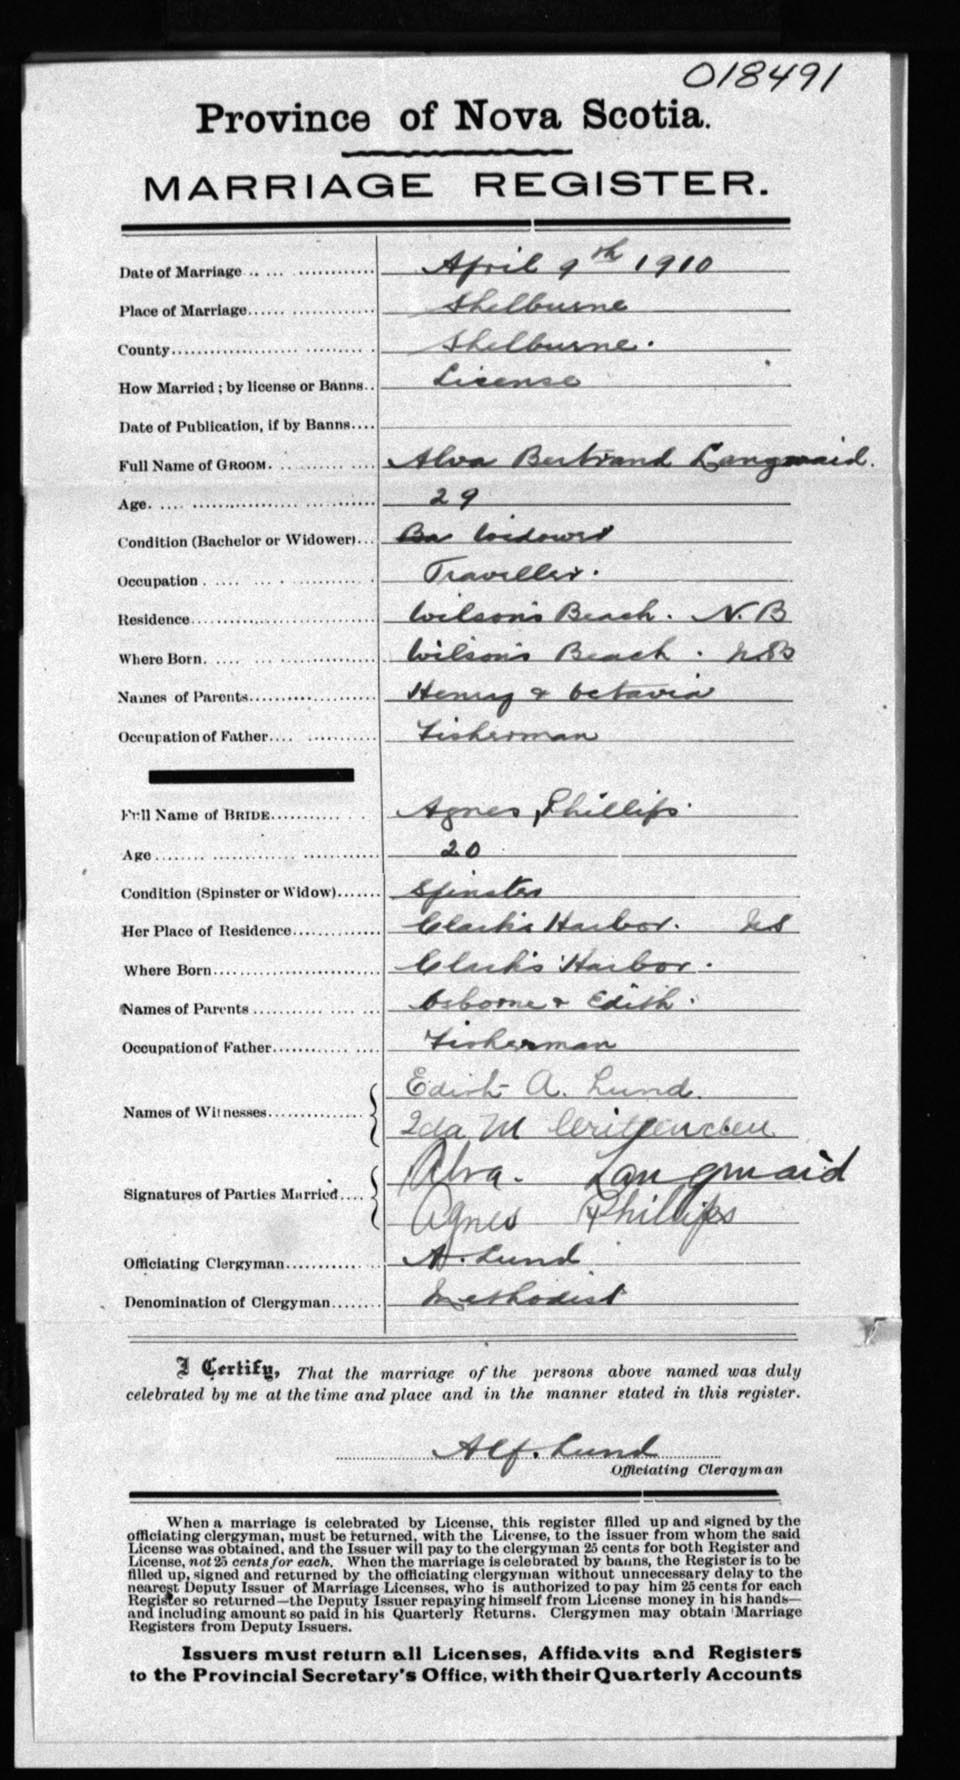 018491
Province of Nova Scotia.
MARRIAGE REGISTER.
Date of Marriage .. ... ............ April 9th 1910
Place of Marriage...... ............. Shelburne
County........................ ......... . Shelburne.
How Married ; by license or Banns.. License
Date of Publication, if by Banns....
Full Name of GROOM. .......... .... Alva Bertrand Langmaid.
Age. .... .............................. 29
Condition (Bachelor or Widower)... Ba Widower
Occupation . .... ... . ............. Traveller.
Residence............................... Wilson's Beach. N.B
Where Born. .... .................... Wilson's Beach. N.B
Names of Parents..................... Henry & Octavia
Occupation of Father.... ........... Fisherman
Full Name of BRIDE........... . . Agnes Phillips.
Age ........ ...... ................ 20
Condition (Spinster or Widow)....... Spinster
Her Place of Residence............... Clark's Harbor. NS
Where Born............................ Clark's Harbor.
Names of Parents ............ .... ... Osborne & Edith.
Occupation of Father............ .... Fisherman
Names of Witnesses............... Edith A. Lund.
Ida M Crittenden
Signatures of Parties Married.... Alva. Langmaid
Agnes Phillips
Officiating Clergyman............ .. A. Lund
Denomination of Clergyman........ Methodist
I Certify, That the marriage of the persons above named was duly
celebrated by me at the time and place and in the manner stated in this register.
Alf. Lund
Officiating Clergyman
When a marriage is celebrated by License, this register filled up and signed by the
officiating clergyman, must be returned, with the License, to the issuer from whom the said
License was obtained, and the Issuer will pay to the clergyman 25 cents for both Register and
License, not 25 cents for each. When the marriage is celebrated by banns, the Register is to be
filled up, signed and returned by the officiating clergyman without unnecessary delay to the
nearest Deputy Issuer of Marriage Licenses, who is authorized to pay him 25 cents for each
Register so returned—the Deputy Issuer repaying himself from License money in his hands—
and including amount so paid in his Quarterly Returns. Clergymen may obtain Marriage
Registers from Deputy Issuers.
Issuers must return all Licenses, Affidavits and Registers
to the Provincial Secretary's Office, with their Quarterly Accounts